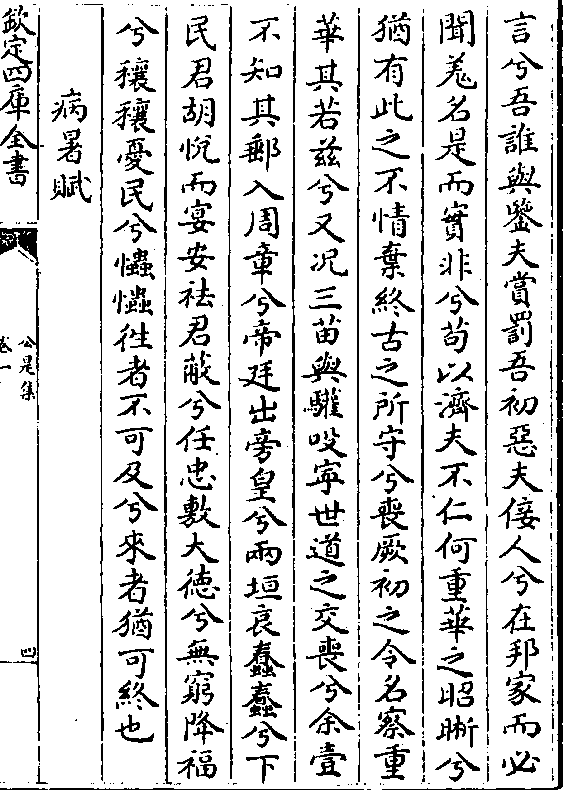 言兮吾誰與鑒夫賞罰吾初惡夫佞人兮在邦家而必
聞羌名是而實非兮苟以濟夫不仁何重華之昭晣兮
猶有此之不情棄終古之所守兮喪厥初之令名察重
華其若兹兮又况三苗與驩吺寜世道之交喪兮余壹
不知其郵入周章兮帝廷出旁皇兮兩垣哀蠢蠢兮下
民君胡怳而宴安祛君蔽兮任忠敷大德兮無窮降福
兮穰穰憂民兮㦜㦜徃者不可及兮來者猶可終也
病暑賦
欽定四庫全書
公是集
卷一
四